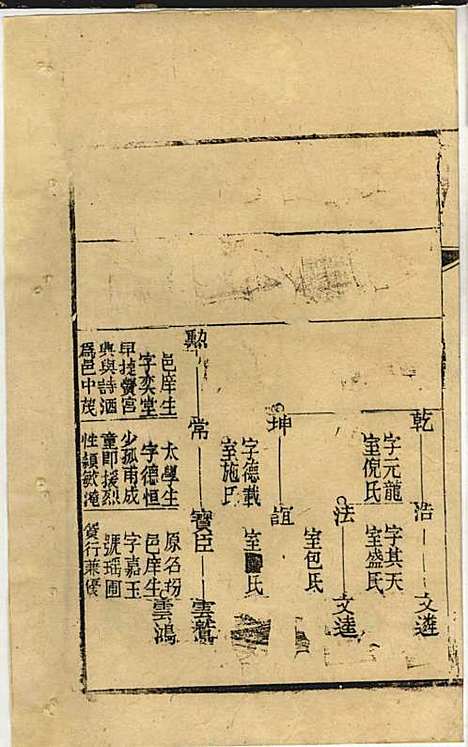 乾
浩
文遴
字元龍
室倪氏
字其天
室盛氏
法
文逵
室包氏
坤
誼
字德載
室施氏
室
氏
勲
常
寳臣
雲鵞
邑庠生
字奕堂
早捷黌宮
典與詩酒
爲邑中茂
太學生
字德恒
少孤甫成
童即援烈
性頴敏淹
原名
邑庠生
字嘉玉
號瑶圃
貭行兼優
雲鴻